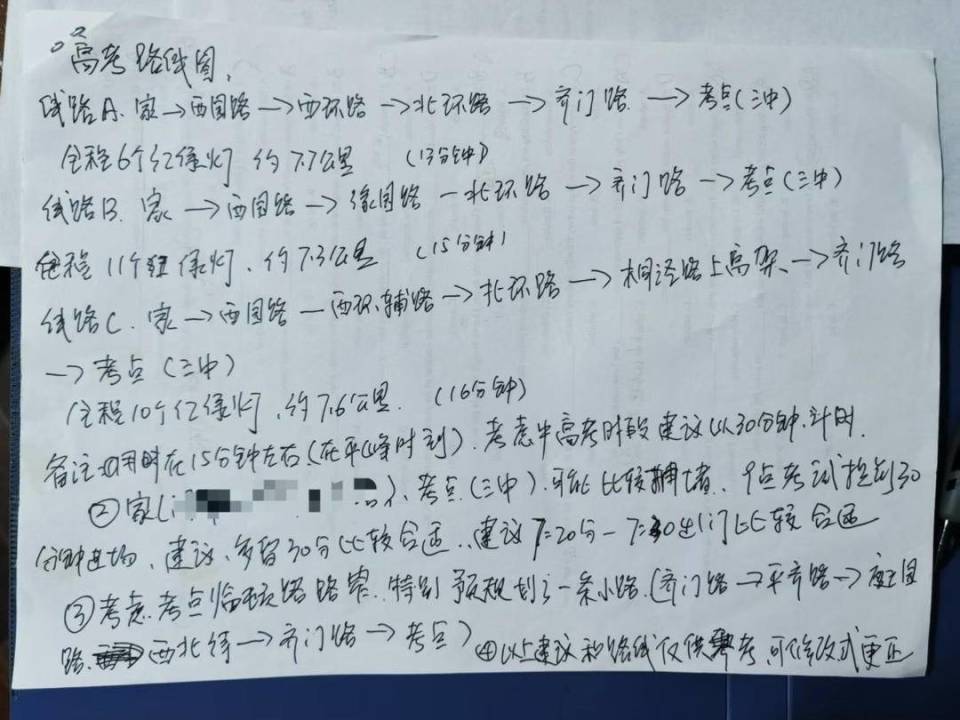 高考路线图,
线路A. 家→西园路→西环路→北环路→齐门路→考点(三中)
全程6个红绿灯 约7.7公里 (13分钟)
线路B. 家→西园路→缘园路—北环路→齐门路→考点(三中)
全程11个红绿灯、约7.3公里 (15分钟)
线路C. 家→西园路—西环辅路→北环路→相泾路上高架、→齐门路
→考点(三中)
全程10个红绿灯,约7.6公里. (16分钟)
备注 用时在15分钟左右(在平峰时刻). 考虑中高考时段建议以30分钟计时.
②家( )、考点(三中).可能比较拥堵、9点考试提前30
分钟进场、建议多留30分比较合适..建议7:20分-7:30出门比较合适
③考虑考点临顿路路窄.特别预规划了一条小路.(齐门路→平齐路→
路 西北街→齐门路→考点) ④以上建议和路线仅供参考,可修改或更正